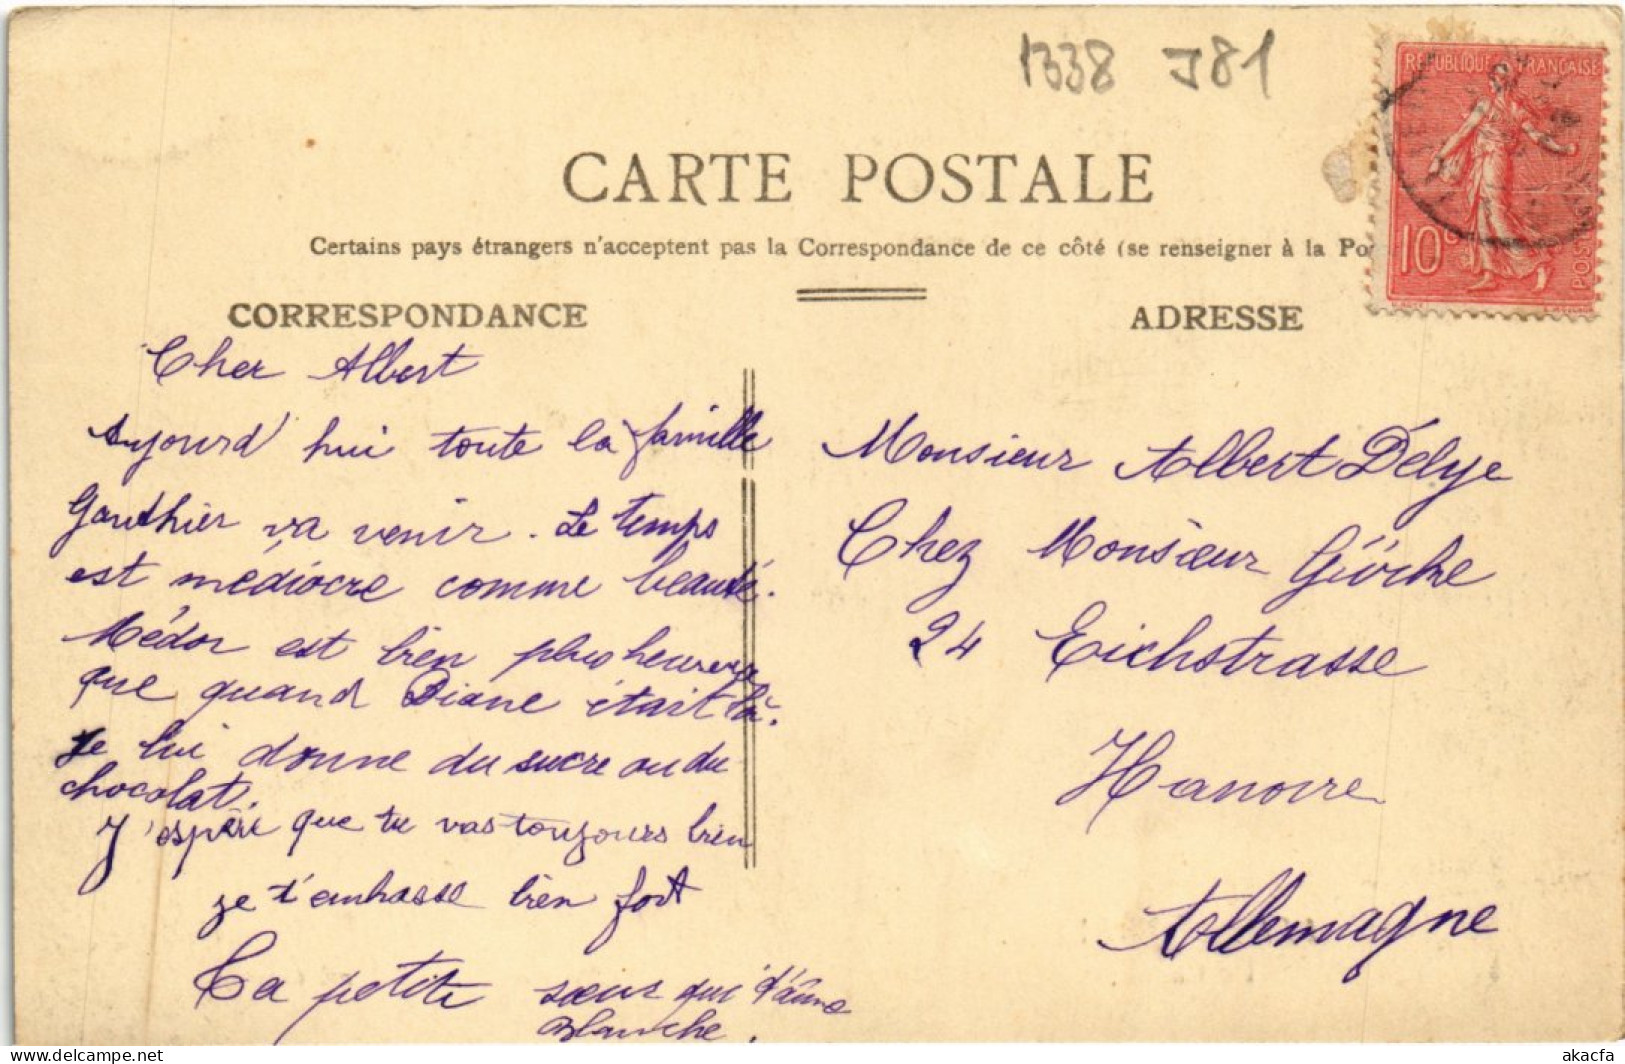 1338 J81
RÉPUBLIQUE FRANÇAISE
10c
POSTES
CARTE POSTALE
Certains pays étrangers n'acceptent pas la Correspondance de ce côté (se renseigner à la Po
CORRESPONDANCE
Cher Albert
Aujourd'hui toute la famille
Gauthier va venir. Le temps
est médiocre comme beauté.
Médor est bien plus heureux
que quand Diane était là.
Je lui donne du sucre ou du
chocolat.
J'espère que tu vas toujours bien
je t'embasse bien fort
Ta petite soeur qui t'aime
Blanche.
ADRESSE
Monsieur Albert Délye
Chez Monsieur
24 Eichstrasse
Hanovre
Allemagne
delcampe.net
akacfa